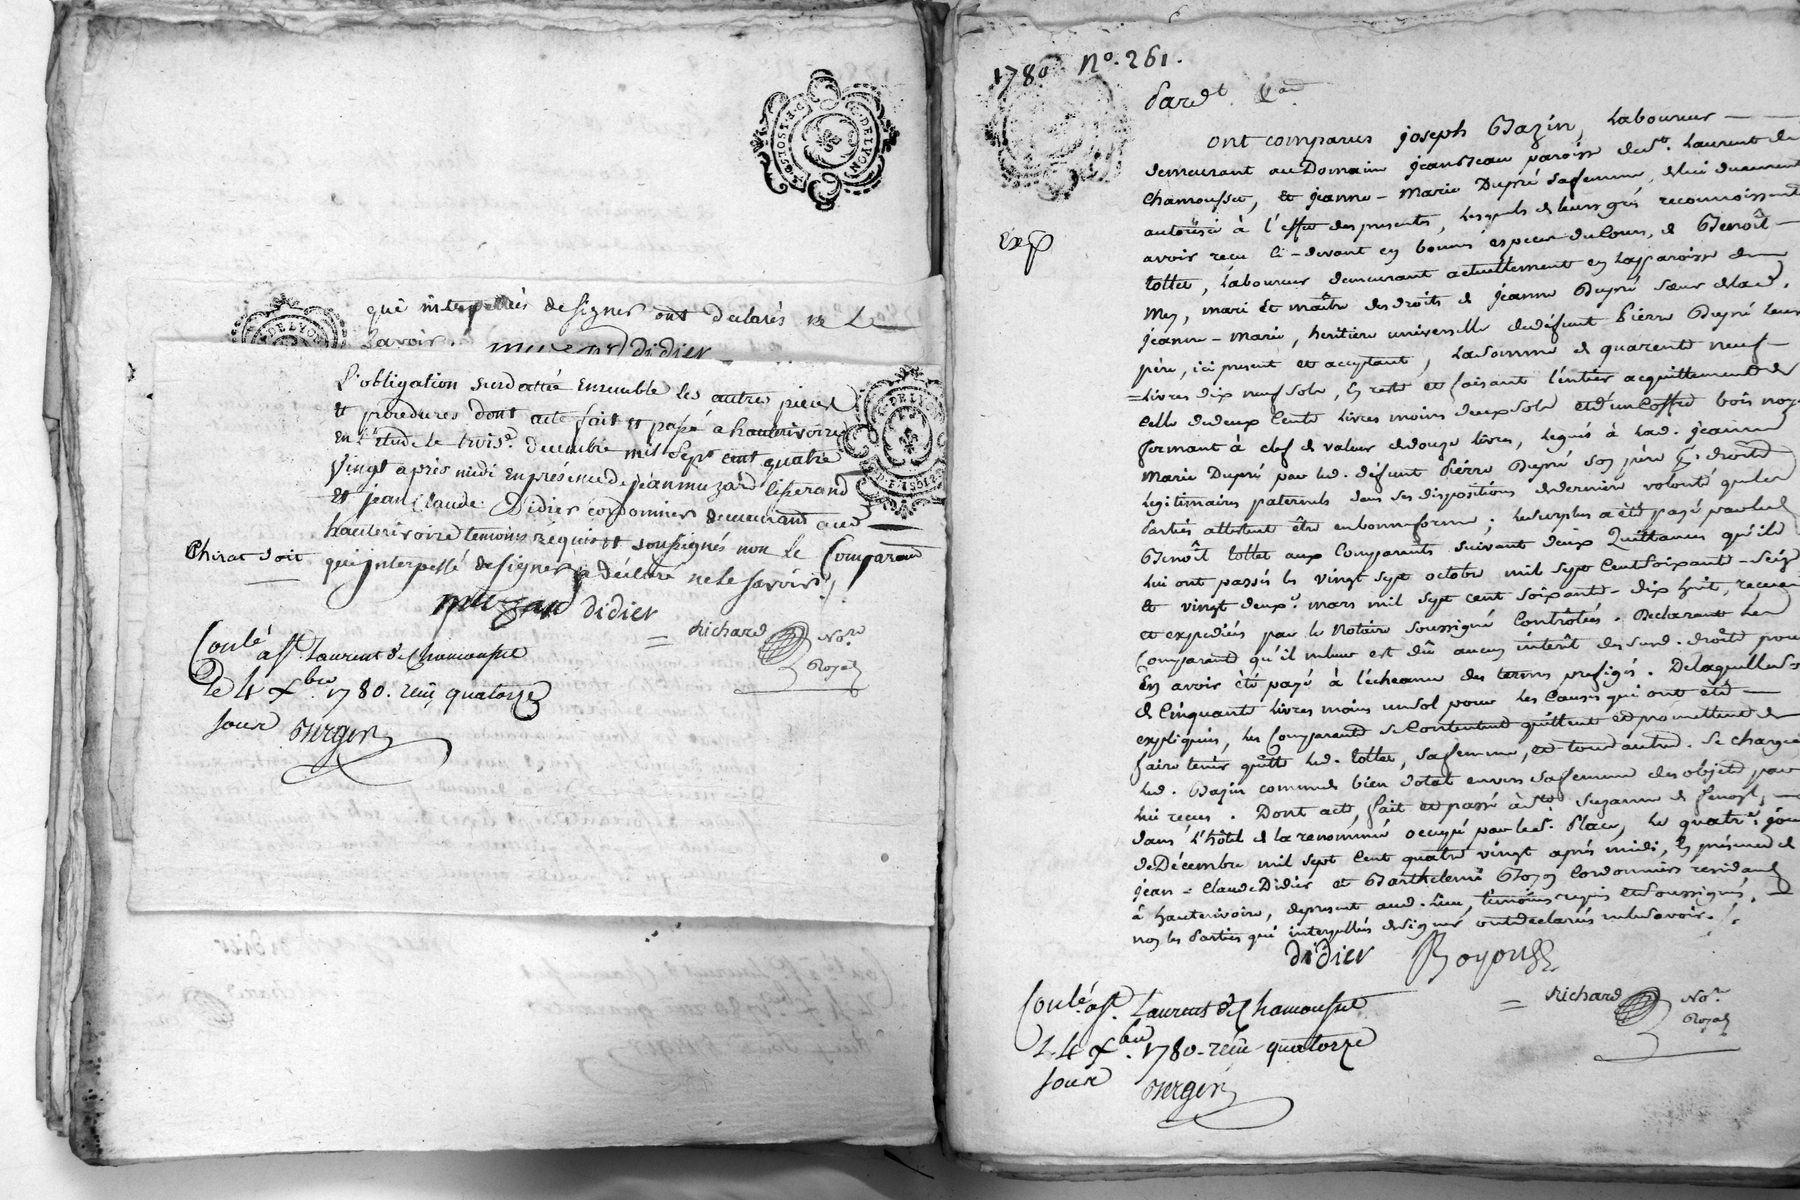 que interpellés de signer ont déclarés ne le
savoir. muzard didier
L'obligation susdattée Ensemble les autres pieces
et procedures dont acte fait et passé a hauterivoire
En l'étude le trois.e decembre mil Sept cent quatre
vingt après midi En présence de jean muzard tisserand
Et jean Claude Didier cordonnier demeurant aud.
hauterivoire temoins réquis et soussignés non le Comparant
Chirat soit
qui interpellé de signer a déclaré ne le savoir./.
muzard didier
Richard No.re
Royal
Conlé a St. Laurent de Chamousset
Le 4 Xbre. 1780. reçu quatorze
sous
GLE DE LYON
1780 No. 261.
Pard.t
ont comparus joseph Bazin, Laboureur
demeurant au Domaine paroisse de St. Laurent de
Chamousset, et jeanne-Marie Dupré sa femme, de lui duement
autorisée à l'effet des presentes, Lesquels de leurs grés reconnoissent
Exp
avoir recu ci-devant en bonnes espèces du Cours, de Benoît
tottet, Laboureur demeurant actuellement en la paroisse de
Mey, mari et maître des droits de jeanne Dupré sœur de lad.
jeanne-Marie, heritière universelle dudéfunt Pierre Dupré Leur
père, ici present et acceptant, La somme de quarente neuf
=Livres dix neuf sols, En reste et faisant l'entier acquittement de
celle de deux Cents Livres moins deux sols et d'un Coffre bois noyer
fermant à clef de valeur de douze Livres, Legués à Lad. jeanne
Marie Dupré par led. défunt Pierre Dupré son père pr. droits
Legitimaires paternels dans ses dispositions de derniere volonté que les
Parties attestent être en bonne forme; Le surplus a été payé par led.
Benoît tottet aux Comparants suivant deux Quittances qu'ils
Lui ont passés les vingt sept octobre mil sept Cent soixante-seize
et vingt deux.e mars mil sept cent soixante-dix huit, recues
et expediées par le Notaire soussigné Contrôlées. Declarant les
Comparants qu'il ne leur est dû aucun intérêt des susd. droits pour
En avoir été payé à l'écheance des termes prefigés. De laquelle somme
de Cinquante Livres moins un sol pour les Causes qui ont été
expliquées, les Comparants se Contentent quittent et promettent de
faire tenir quitte led. tottet, sa femme, et tous autres. Se charge
led. Bazin comme de bien dotal envers sa femme des objets par
lui reçus. Dont acte, fait et passé à Ste Suzanne de
dans l'hôtel de la renommée occupé par le Sr. Place, Le quatre.e jour
de Décembre mil sept Cent quatre vingt après midi, En présence de
jean-Claude Didier et Barthelemi Boyon Cordonniers residants
à hauterivoire, de present aud. Lieu temoins requis et soussignés,
non les Parties qui interpellées de signer ont declarés ne le savoir./.
didier Boyon
Richard No.re
Royal
Conlé. a St. Laurent de Chamousset
Le 4 Xbre. 1780. reçu quatorze
sous